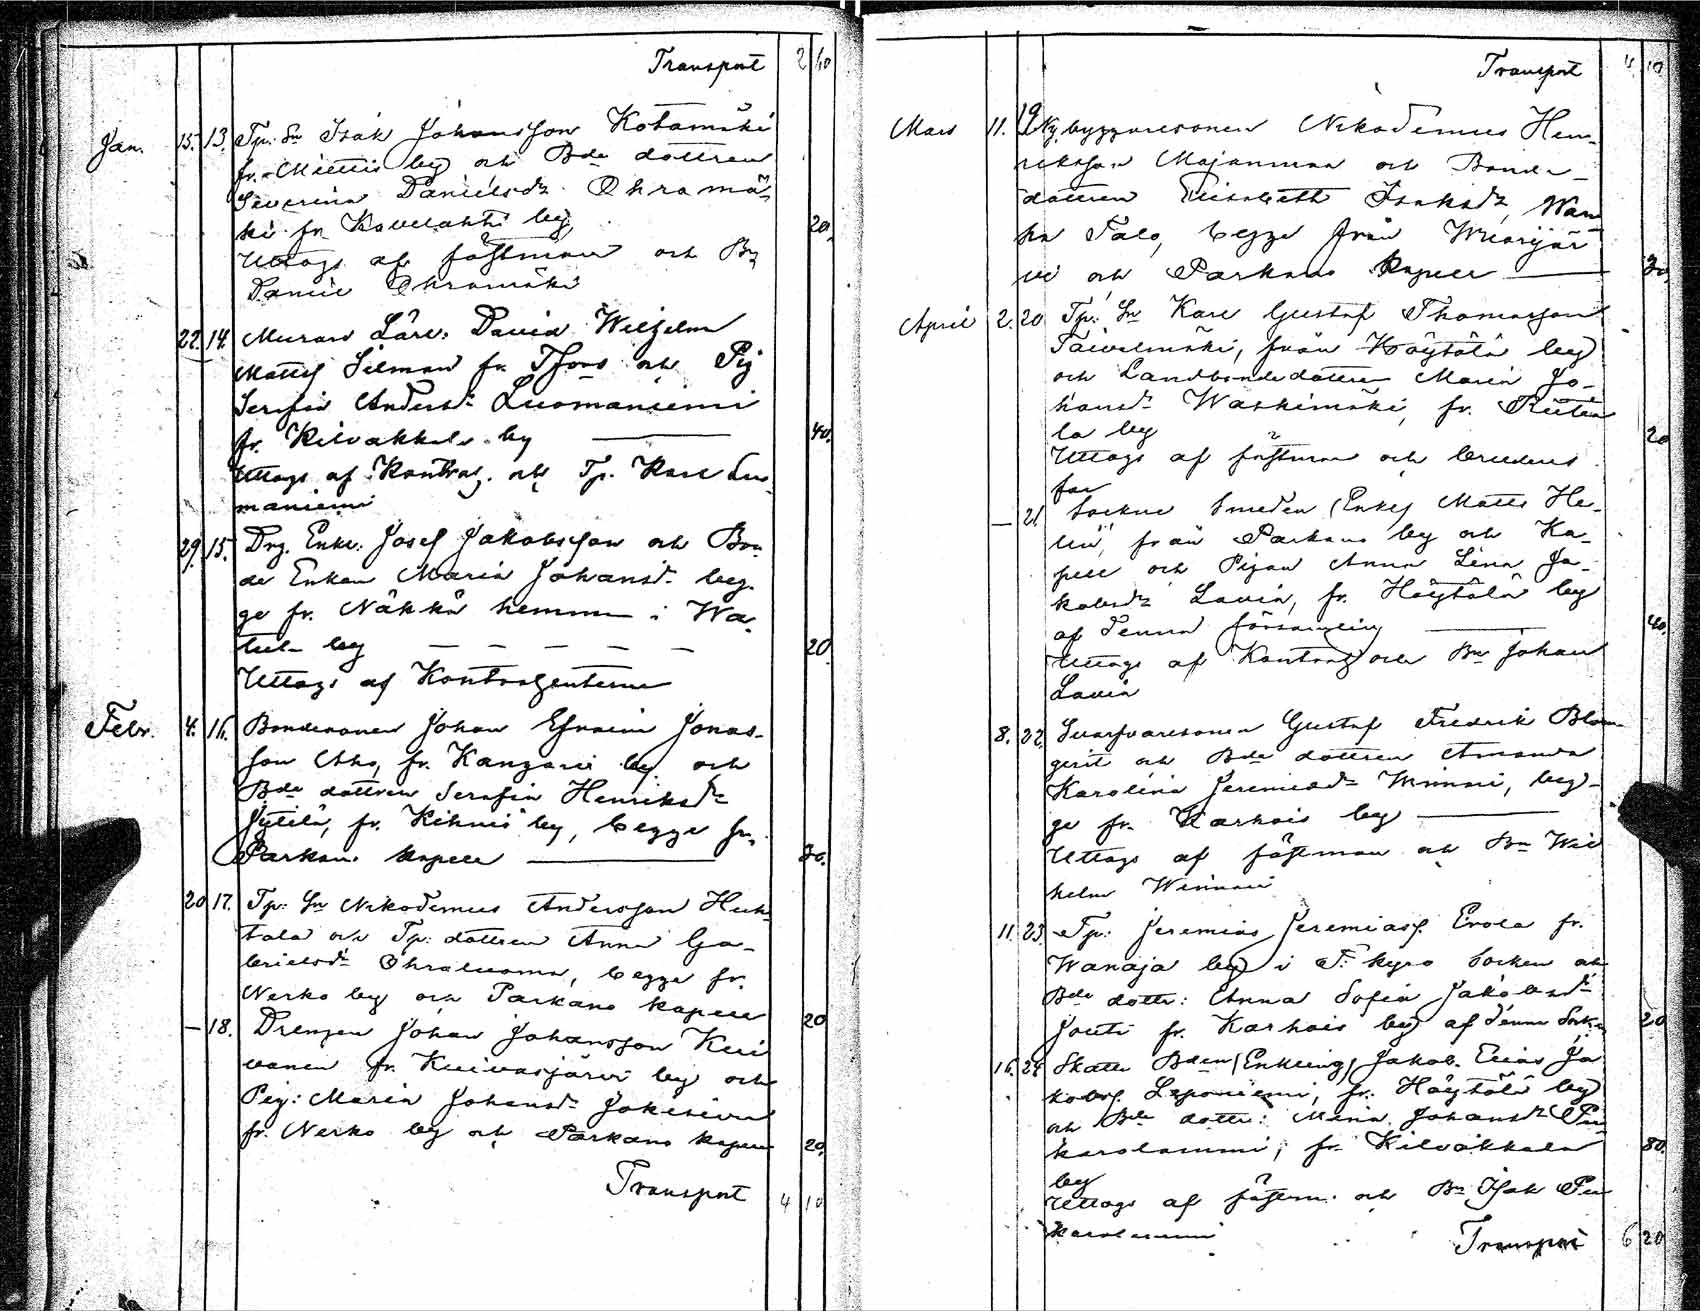 Transport 2 60
Jan. 15. 13. Tp: Sn Isak Johansson Kotamäki
fr. Miettis by och Bde dottren
Severina Danielsdr Ohramä-
ki fr. Kovelahti by, 20.
Uttogs af fästman och Bn
Daniel Ohramäki
22. 14. Murare Lärl: David Wilhelm
Matts Silman fr. Tfors och Pig
Serafia Andersdr Luomaniemi
fr. Kilvakkala by 40.
Uttogs af Kontrag. och Tp. Karl Luo-
maniemi
29. 15. Drg. Enkl: Josef Jakobsson och Bon-
de Enkan Maria Johansdr beg-
ge fr. Näkkä hemman i Wa-
tula by 20.
Uttogs af Kontragenterne
Febr. 4. 16. Bondesonen Johan Efraim Jonas-
son Aho, fr. Kangari by och
Bde dottren Serafia Henriksdr
Jylilä, fr. Kihniö by, begge fr.
Parkano kapell 20.
20 17. Tp: Sn Nikodemus Andersson Huh-
tala och Tp: dottren Anna Ga-
brielsdr Ohraluoma, begge fr.
Nerko by och Parkano kapell 20
— 18. Drengen Johan Johansson Kui-
vanen fr. Kuivasjärvi by och
Pig: Maria Johansdr Jokisivu
fr. Nerko by och Parkano kapell 20.
Transport 4 10
Transport 4 10
Mars 11. 19 Nybyggaresonen Nikodemus Hen-
riksson Majanmaa och Bonde-
dottren Elisabeth Isaksdr Wan-
ha Talo, begge från
och Parkano Kapell 20.
April 2. 20 Tp: Sn Karl Gustaf Thomasson
Taivalmäki, från Höytölä by
och Landbondedottren Maria Jo-
hansdr Waskimäki, fr. Riitia
la by 20
Uttogs af fästman och brudens
far
— 21 Sockne Smeden (Enkl) Matts He-
lin, från Parkano by och Ka-
pell och Pigan Anna Lena Ja-
kobsdr Lavia, fr. Höytölä by
af denna församling 40.
Uttogs af Kontrag och Bn Johan
Lavia
8. 22. Svarfvaresonen Gustaf Fredrik Blom-
qvist och Bde dottren Amanda
Karolina Jeremiasdr Winnari, beg-
ge fr. Karhois by
Uttogs af fästman och Bn Wil
helm Winnari
11. 23. Tp: Jeremias Jeremiass. Erola fr.
Wanaja by i T: kyro Socken och
Bde dottr: Anna Sofia Jakobsdr
Jouti fr. Karhois by af denna Sockn 20
16. 24 Skatte Bden (Enkling) Jakob Elias Ja
kobss. Leponiemi, fr. Höytölä by
och Bde dottr: Maria Johansdr Pu-
karolammi, fr. Kilvakkala 80.
by
Uttogs af fästm. och Bn Isak Pu
karolammi
Transport 6 20